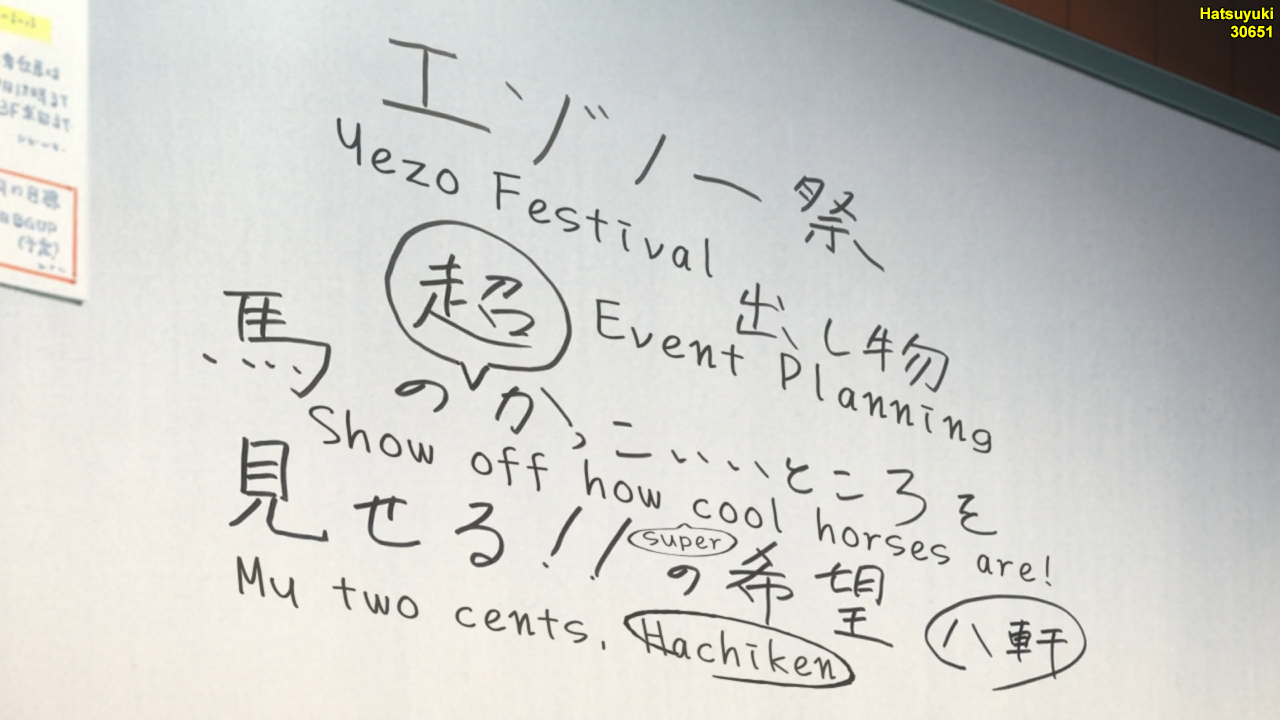 Hatsuyuki
30651
エゾノー祭
Yezo Festival
出し物
Event Planning
超
馬のかっこいいところを
Show off how cool horses are!
super
見せる!!
の希望 八軒
My two cents. Hachiken